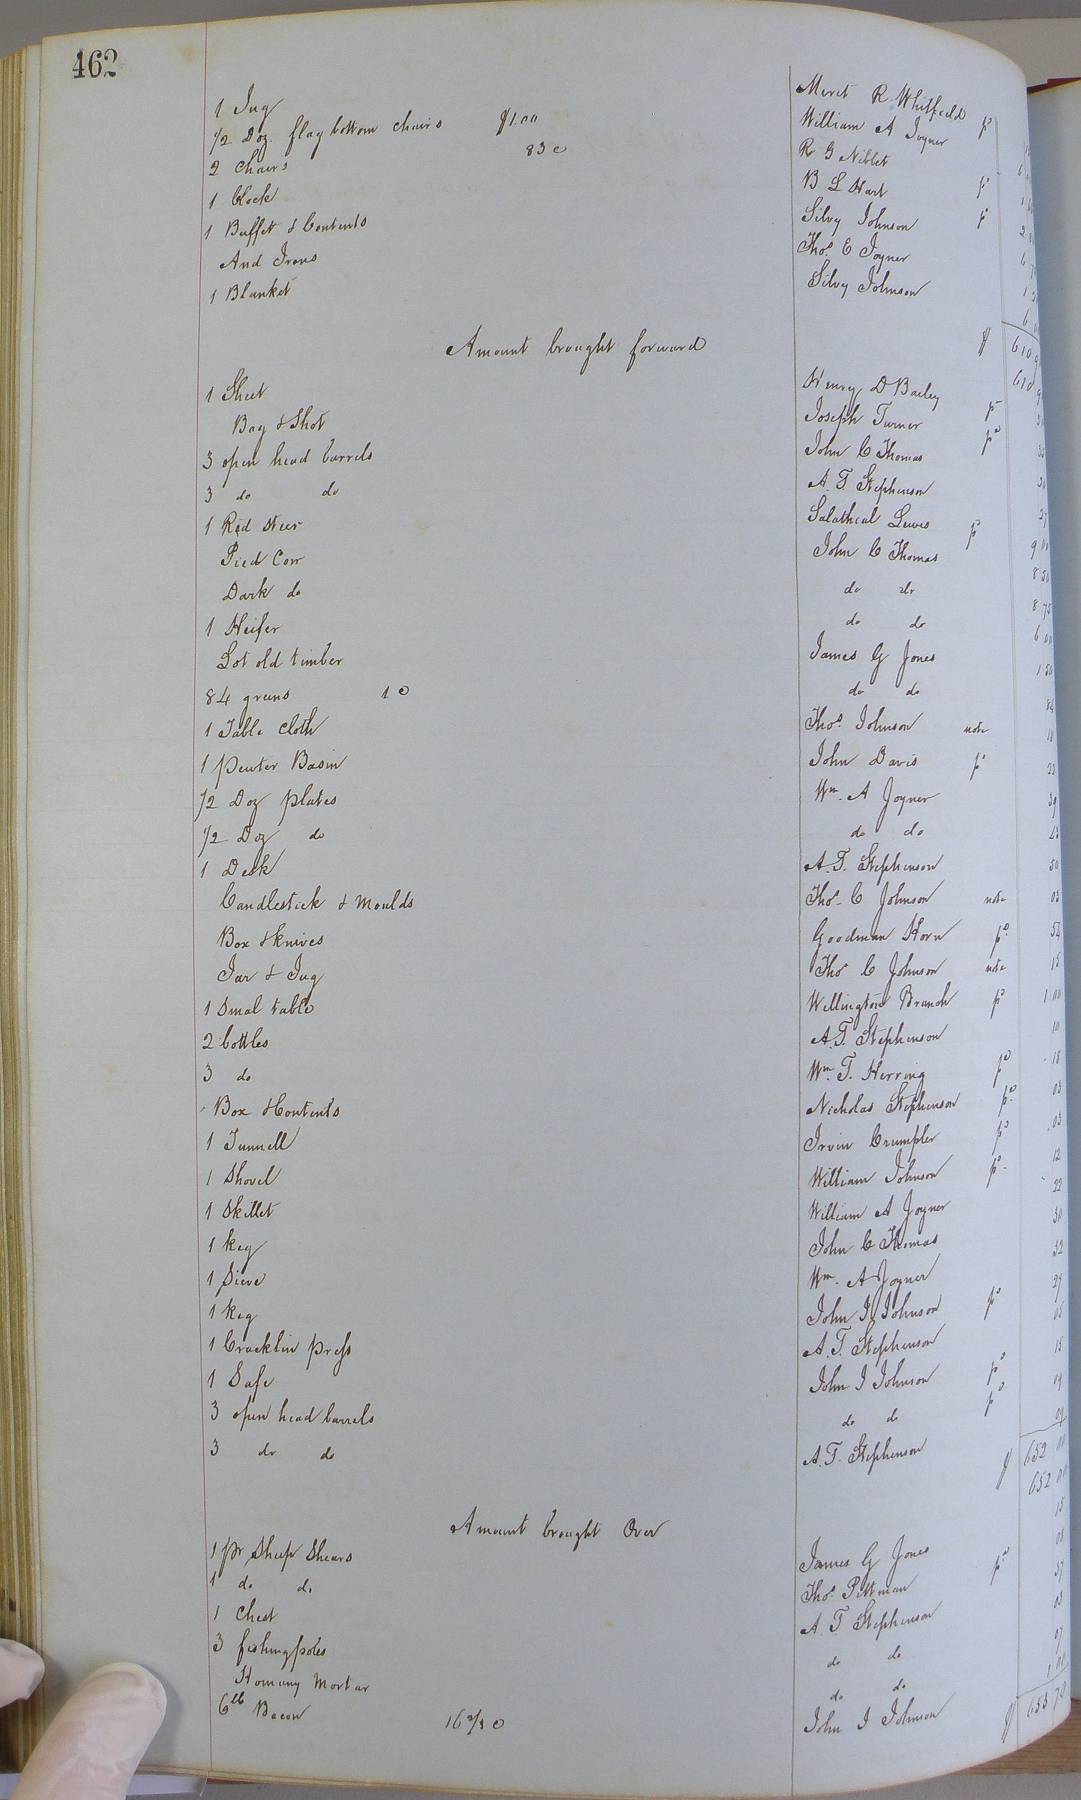 462
1 Jug Meret R. Whitfield pd
1/2 Doz. flag bottom chairs $1.00 William A Joyner
2 Chairs 83c R G Niblet
1 Clock B L Hart pd
1 Buffet & Contents Silvy Johnson pd
And Irons Thos. E Joyner
1 Blanket Silvy Johnson
Amount brought forward $ 610
1 Sheet Henry D Bailey 610
Bag & Shot Joseph Turner pd
3 open head barrels John C Thomas pd
3 do do A. T. Stephenson
1 Red Steer Salatheal Lewis pd 9 00
Pied Cow John C Thomas 8 50
Dark do do do 8 75
1 Heifer do do 6 00
Lot old timber James G Jones 1 50
84 grens 1c do do 84
1 Table Cloth Thos. Johnson note 18
1 pewter Basin John Davis pd
1/2 Doz plates Wm. A Joyner 39
1/2 Doz do do do
1 Desk A. T. Stephenson 50
Candlestick & Moulds Thos. C Johnson note 03
Box & knives Goodman Horn pd 54
Jar & Jug Thos C Johnson note 15
1 Smal table Wellington Branch pd 1 00
2 bottles A. T. Stephenson 10
3 do Wm. T. Herring pd 18
Box & Contents Nicholas Stephenson pd 03
1 Funnell Irvin Crumpler pd 03
1 Shovel William Johnson pd 12
1 Skillet William A Joyner 22
1 keg John C Thomas 30
1 Sieve Wm. A Joyner 32
1 keg John I Johnson pd
1 Cracklin press A. T. Stephenson 05
1 Safe John I Johnson pd 15
3 open head barrels do do pd 09
3 do do A. T. Stephenson 09
$ 652 00
Amount brought Over 652 00
1 pr Sheep Shears James G Jones pd 15
1 do do Thos. Pittman 08
1 Chest A. T Stephenson 57
3 fishing poles do do 03
Homany Mortar do do 07
6lb Bacon 16 2/3 c John I Johnson 1 00
$ 653 70